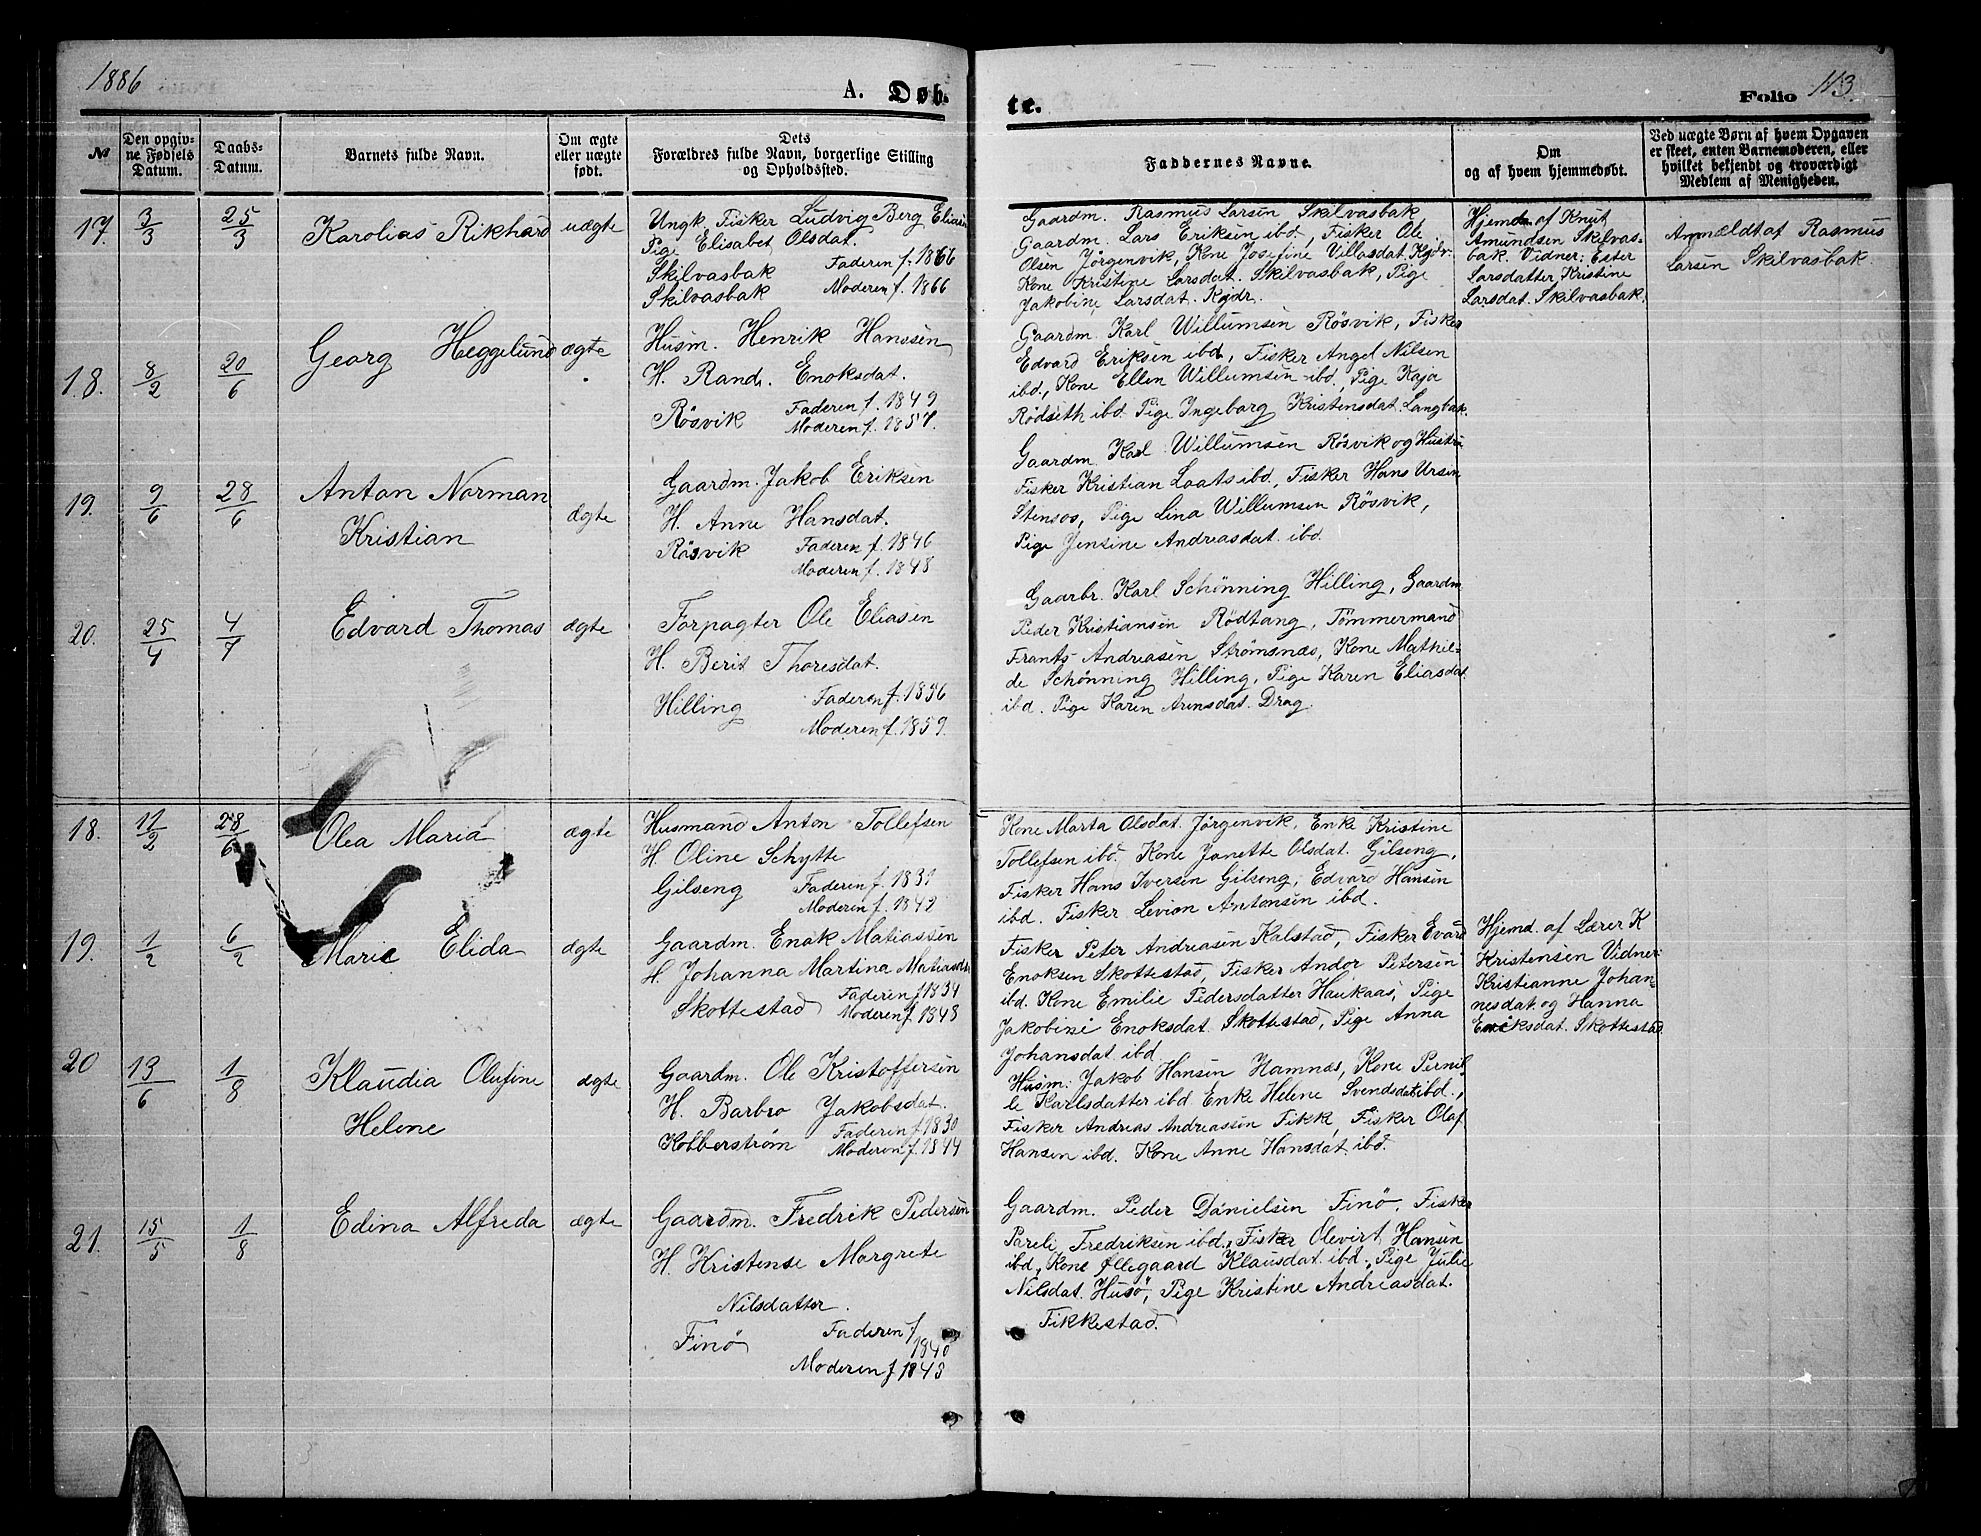 1886
A. Døb-
te.
Folio 113.
№
Den opgiv-
ne Fødsels
Datum.
Daabs-
Datum.
Barnets fulde Navn.
Om ægte
eller uægte
født.
Dets
Forældres fulde Navn, borgerlige Stilling
og Opholdssted.
Faddernes Navne.
Om
og af hvem hjemmedøbt.
Ved uægte Børn af hvem Opgaven
er skeet, enten Barnemoderen, eller
hvilket bekjendt og troværdigt
Medlem af Menigheden.
17. 3/3 25/3 Karolias Rikhard uægte
Ungk. Fisker Ludvig Berg Eliasen
Pige Elisabet Olsdat.
Skilvasbak Faderen f. 1866
Skilvasbak Moderen f. 1866
Gaardm. Rasmus Larsen Skilvasbak
Gaardm. Lars Eriksen ibd, Fisker Ole
Olsen Jörgenvik, Kone Josefine Villasdat. Kjdr.
Kone Kristine Larsdat. Skilvasbak, Pige
Jakobine Larsdat. Kjdr.
Hjemd. af Knut
Amundsen Skilvas-
bak. Vidner: Ester
Larsdatter, Kristine
Larsdat. Skilvasbak.
Anmældt af Rasmus
Larsen Skilvasbak.
18. 8/2 20/6 Georg Heggelund ægte
Husm. Henrik Hanssen
H. Rand. Enoksdat.
Rösvik Faderen f. 1849
Moderen f. 1857.
Gaardm. Karl Willumsen Rösvik, Fisker
Edvard Eriksen ibd, Fisker Angel Nilsen
ibd., Kone Ellen Willumsen ibd, Pige Kaja
Rödseth ibd. Pige Ingeborg Kristensdat. Langbak.
19. 9/6 28/6 Anton Norman
Kristian
ægte
Gaardm. Jakob Eriksen
H. Anne Hansdat.
Rösvik Faderen f. 1846
Moderen f. 1848
Gaardm. Karl Willumsen Rösvik og Hustru
Fisker Kristian Laats ibd., Fisker Hans Ursin
Stensos, Pige Lina Willumsen Rösvik,
Pige Jensine Andreasdat. ibd.
20. 25/4 4/7 Edvard Thomas ægte
Forpagter Ole Eliasen
H. Berit Thoresdat.
Hilling Faderen f. 1836
Moderen f. 1859.
Gaarbr. Karl Schönning Hilling, Gaardm
Peder Kristiansen Rödtang, Tömmermand
Frants Andreasen Strömsnæs, Kone Mathil-
de Schönning Hilling, Pige Karen Eliasdat
ibd. Pige Karen Arensdat. Drag.
18. 11/2 28/6 Olea Maria ægte
Husmand Anton Tollefsen
H. Oline Schytte
Gilseng Faderen f. 1831
Moderen f. 1849
Kone Marta Olsdat. Jörgenvik, Enke Kristine
Tollefsen ibd. Kone Janette Olsdat. Gilseng,
Fisker Hans Iversen Gilseng, Edvard Hansen
ibd. Fisker Levion Antonsen ibd.
19. 1/2 6/2 Marie Elida ægte
Gaardm. Enok Matiassen
H. Johanna Martina Matiasdt.
Skottestad Faderen f. 1834
Moderen f. 1848
Fisker Peter Andreasen Kalstad, Fisker Evard
Enoksen Skottestad, Fisker Andor Petersen
ibd. Kone Emilie Pedersdatter Haukaas, Pige
Jakobine Enoksdat. Skottestad, Pige Anna
Johansdat. ibd.
Hjemd. af Lærer K
Kristensen Vidner:
Kristianne Johan-
nesdat. og Hanna
Enoksdat. Skottestad.
20 13/6 1/8 Klaudia Olufine
Helene
ægte
Gaardm. Ole Kristoffersen
H. Barbro Jakobsdat.
Kobberström Faderen f. 1830
Moderen f. 1844
Husm: Jakob Hansen Hamnes, Kone Pernil-
le Karlsdatter ibd. Enke Helene Svendsdat ibd.,
Fisker Andreas Andreassen Fikke, Fisker Olaf
Hansen ibd. Kone Anne Hansdat. ibd.
21. 15/5 1/8 Edina Alfreda ægte
Gaardm. Fredrik Pedersen
H. Kristense Margrete
Nilsdatter.
Finö Faderen f
1840
Moderen f 1848
Gaardm. Peder Danielsen Finö, Fisker
Pareli Fredriksen ibd., Fisker Olevirt Hansen
ibd., Kone Øllegaard Klausdat ibd., Pige Julie
Nilsdat. Husö, Pige Kristine Andreasdat.
Fikkestad.